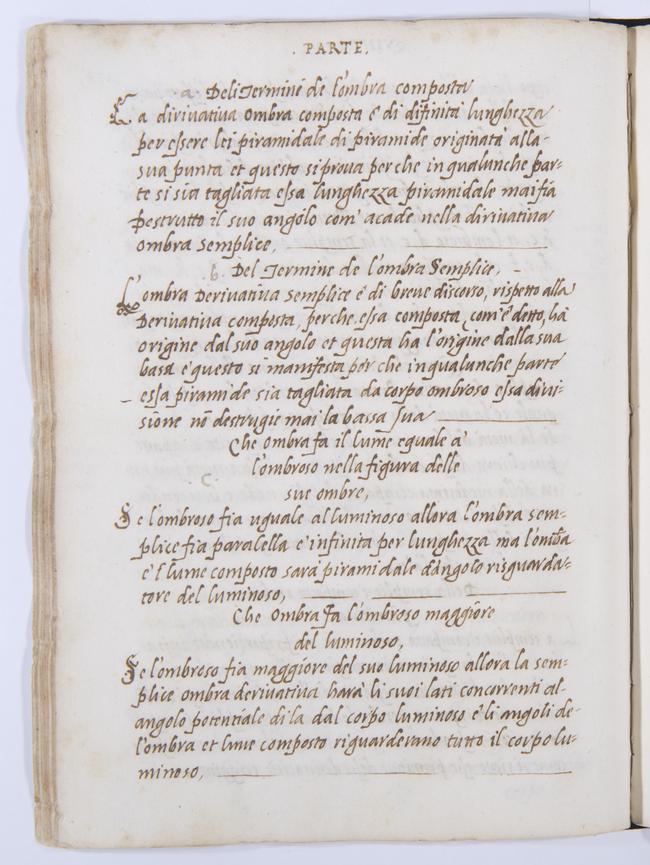 . PARTE .
a. Deli Termini de l'ombra composta
La dirivativa ombra composta e' di difinita lunghezza
per essere lei piramidale di piramide originata alla-
sua punta et questo si prova per che in qualunche par-
te si sia tagliata essa lunghezza piramidale mai fia
Destrutto il suo angolo com' acade nella dirivativa
ombra semplice,
b. Del Termine de l'ombra Semplice,
L'ombra Derivativa semplice e' di breve discorso, rispetto alla
Derivativa composta, perche, essa composta, com' e' detto, ha
origine dal suo angolo et questa ha l'origine dalla sua
basa e questo si manifesta per che in qualunche parte
essa piramide sia tagliata da corpo ombroso essa divi-
sione nō destrugie mai la bassa sua
Che ombra fa il lume eguale a'
c l'ombroso nella figura delle
sue ombre,
Se l'ombroso fia uguale al luminoso allora l'ombra sem-
plice fia paralella e' infinita per lunghezza ma l'ombra
e' l lume composto sara' piramidale d'angolo risguarda-
tore del luminoso,
Che Ombra fa l'ombroso maggiore
del luminoso,
Se l'ombroso fia maggiore del suo luminoso allora la sem-
plice ombra derivativa hara' li suoi lati concorrenti al-
angolo potentiale di la dal corpo luminoso e' li angoli de-
l'ombra et lume composto riguarderano tutto il corpo lu-
minoso,